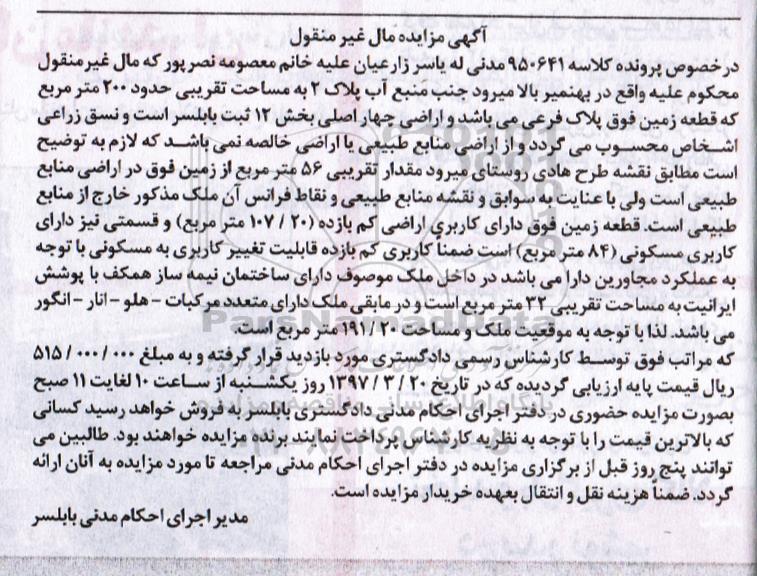 آگهی مزایده مال غیر منقول
درخصوص پرونده کلاسه ۹۵۰۶۴۱ مدنی له یاسر زارعیان علیه خانم معصومه نصرپور که مال غیرمنقول
محکوم علیه واقع در بهنمیر بالا میرود جنب منبع آب پلاک ۲ به مساحت تقریبی حدود ۲۰۰ متر مربع
که قطعه زمین فوق پلاک فرعی می باشد و اراضی چهار اصلی بخش ۱۲ ثبت بابلسر است و نسق زراعی
اشخاص محسوب می گردد و از اراضی منابع طبیعی یا اراضی خالصه نمی باشد که لازم به توضیح
است مطابق نقشه طرح هادی روستای میرود مقدار تقریبی ۵۶ متر مربع از زمین فوق در اراضی منابع
طبیعی است ولی با عنایت به سوابق و نقشه منابع طبیعی و نقاط فرانس آن ملک مذکور خارج از منابع
طبیعی است. قطعه زمین فوق دارای کاربری اراضی کم بازده (۲۰ / ۱۰۷ متر مربع) و قسمتی نیز دارای
کاربری مسکونی (۸۴ متر مربع) است ضمناً کاربری کم بازده قابلیت تغییر کاربری به مسکونی با توجه
به عملکرد مجاورین دارا می باشد در داخل ملک موصوف دارای ساختمان نیمه ساز همکف با پوشش
ایرانیت به مساحت تقریبی ۳۲ متر مربع است و در مابقی ملک دارای متعدد مرکبات - هلو - انار - انگور
می باشد. لذا با توجه به موقعیت ملک و مساحت ۱۹۱/۲۰ متر مربع است.
که مراتب فوق توسط کارشناس رسمی دادگستری مورد بازدید قرار گرفته و به مبلغ ۵۱۵/۰۰۰/۰۰۰
ریال قیمت پایه ارزیابی گردیده که در تاریخ ۲۰ / ۳ / ۱۳۹۷ روز یکشنبه از ساعت ۱۰ لغایت ۱۱ صبح
بصورت مزایده حضوری در دفتر اجرای احکام مدنی دادگستری بابلسر به فروش خواهد رسید کسانی
که بالاترین قیمت را با توجه به نظریه کارشناس پرداخت نمایند برنده مزایده خواهند بود. طالبین می
توانند پنج روز قبل از برگزاری مزایده در دفتر اجرای احکام مدنی مراجعه تا مورد مزایده به آنان ارائه
گردد. ضمناً هزینه نقل و انتقال بعهده خریدار مزایده است.
مدیر اجرای احکام مدنی بابلسر
ParsNamadData